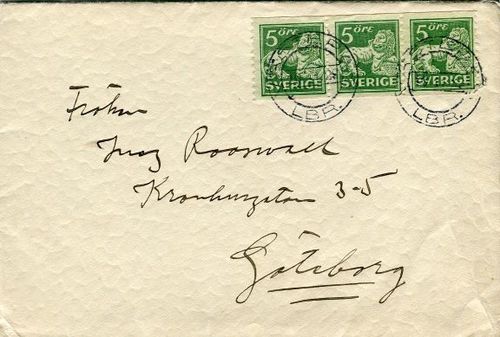 5 ÖRE 5 ÖRE 5 ÖRE
SVERIGE SVERIGE SVERIGE
LBR. LBR.
Fröken
Roosvall
3-5
Göteborg